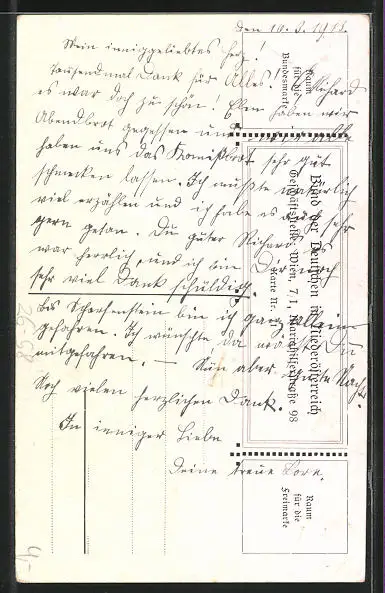 den 10. 9. 1918.
Mein inniggeliebtes Herz!
Tausendmal Dank für Alles! Richard
es war doch zu schön! Eben haben wir
Abendbrot gegessen und wir alle
haben uns das Kommißbrot sehr gut
schmecken lassen. Ich mußte natürlich
viel erzählen und ich habe es auch sehr
gern getan. Du guter Richard es
war herrlich, und ich bin Dir noch
sehr viel Dank schuldig.
Bis Scharfenstein bin ich ganz allein
gefahren. Ich wünschte da wärst Du
mitgefahren. — Nun aber gute Nacht.
Noch vielen herzlichen Dank.
In inniger Liebe
Deine treue Lore.
Raum
für die
Bundesmarke
Bund der Deutschen in Niederösterreich
Geschäftsstelle: Wien, 7/1, Mariahilferstraße 98
Karte Nr.
Raum
für die
Freimarke
2658
4,-